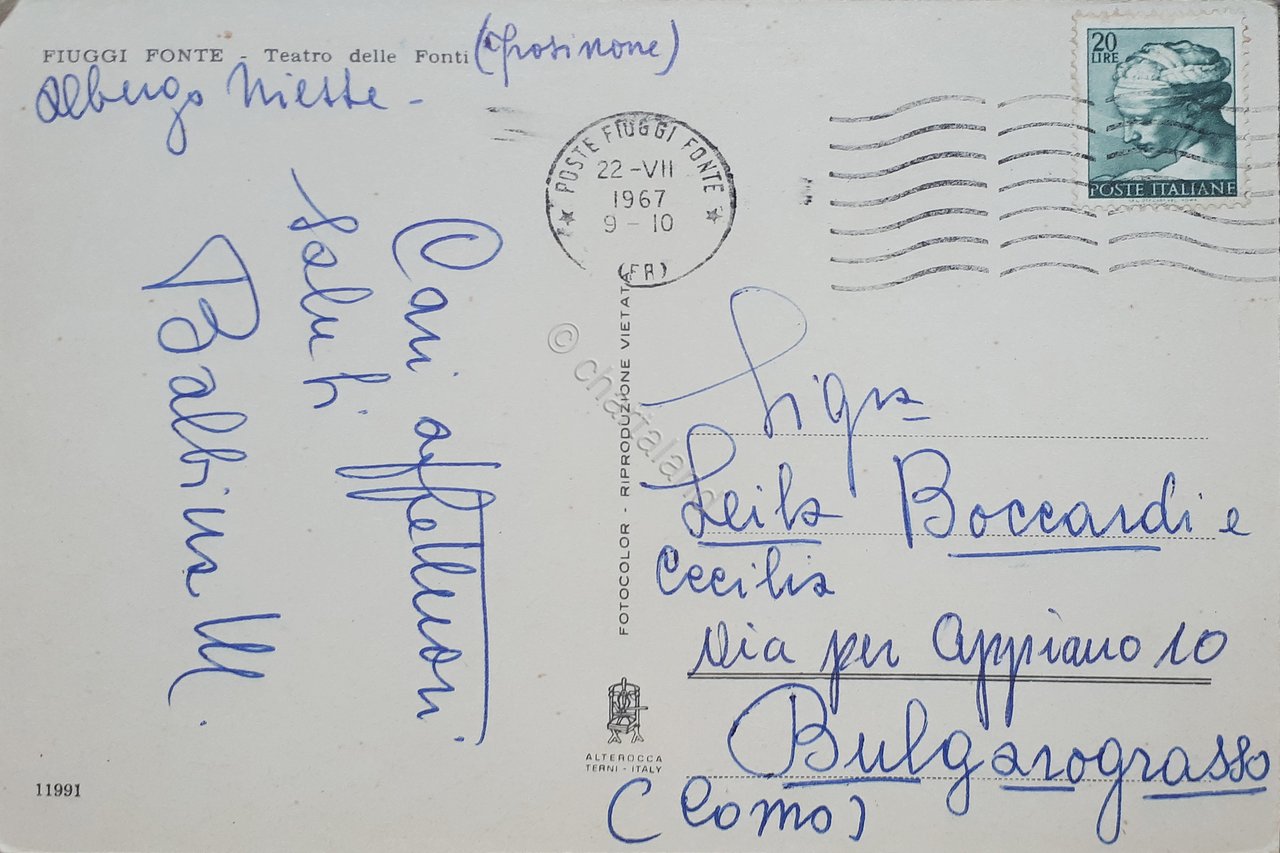 FIUGGI FONTE - Teatro delle Fonti (Frosinone)
Albergo
Cari affettuosi
saluti
Balbina M.
POSTE FIUGGI FONTE
22-VII
1967
9-10
(FR)
20
LIRE
POSTE ITALIANE
© chartaland
FOTOCOLOR - RIPRODUZIONE VIETATA
Sigra
Leila Boccardi e
Cecilia
Via per Appiano 10
Bulgarograsso
(Como)
ALTEROCCA
TERNI - ITALY
11991